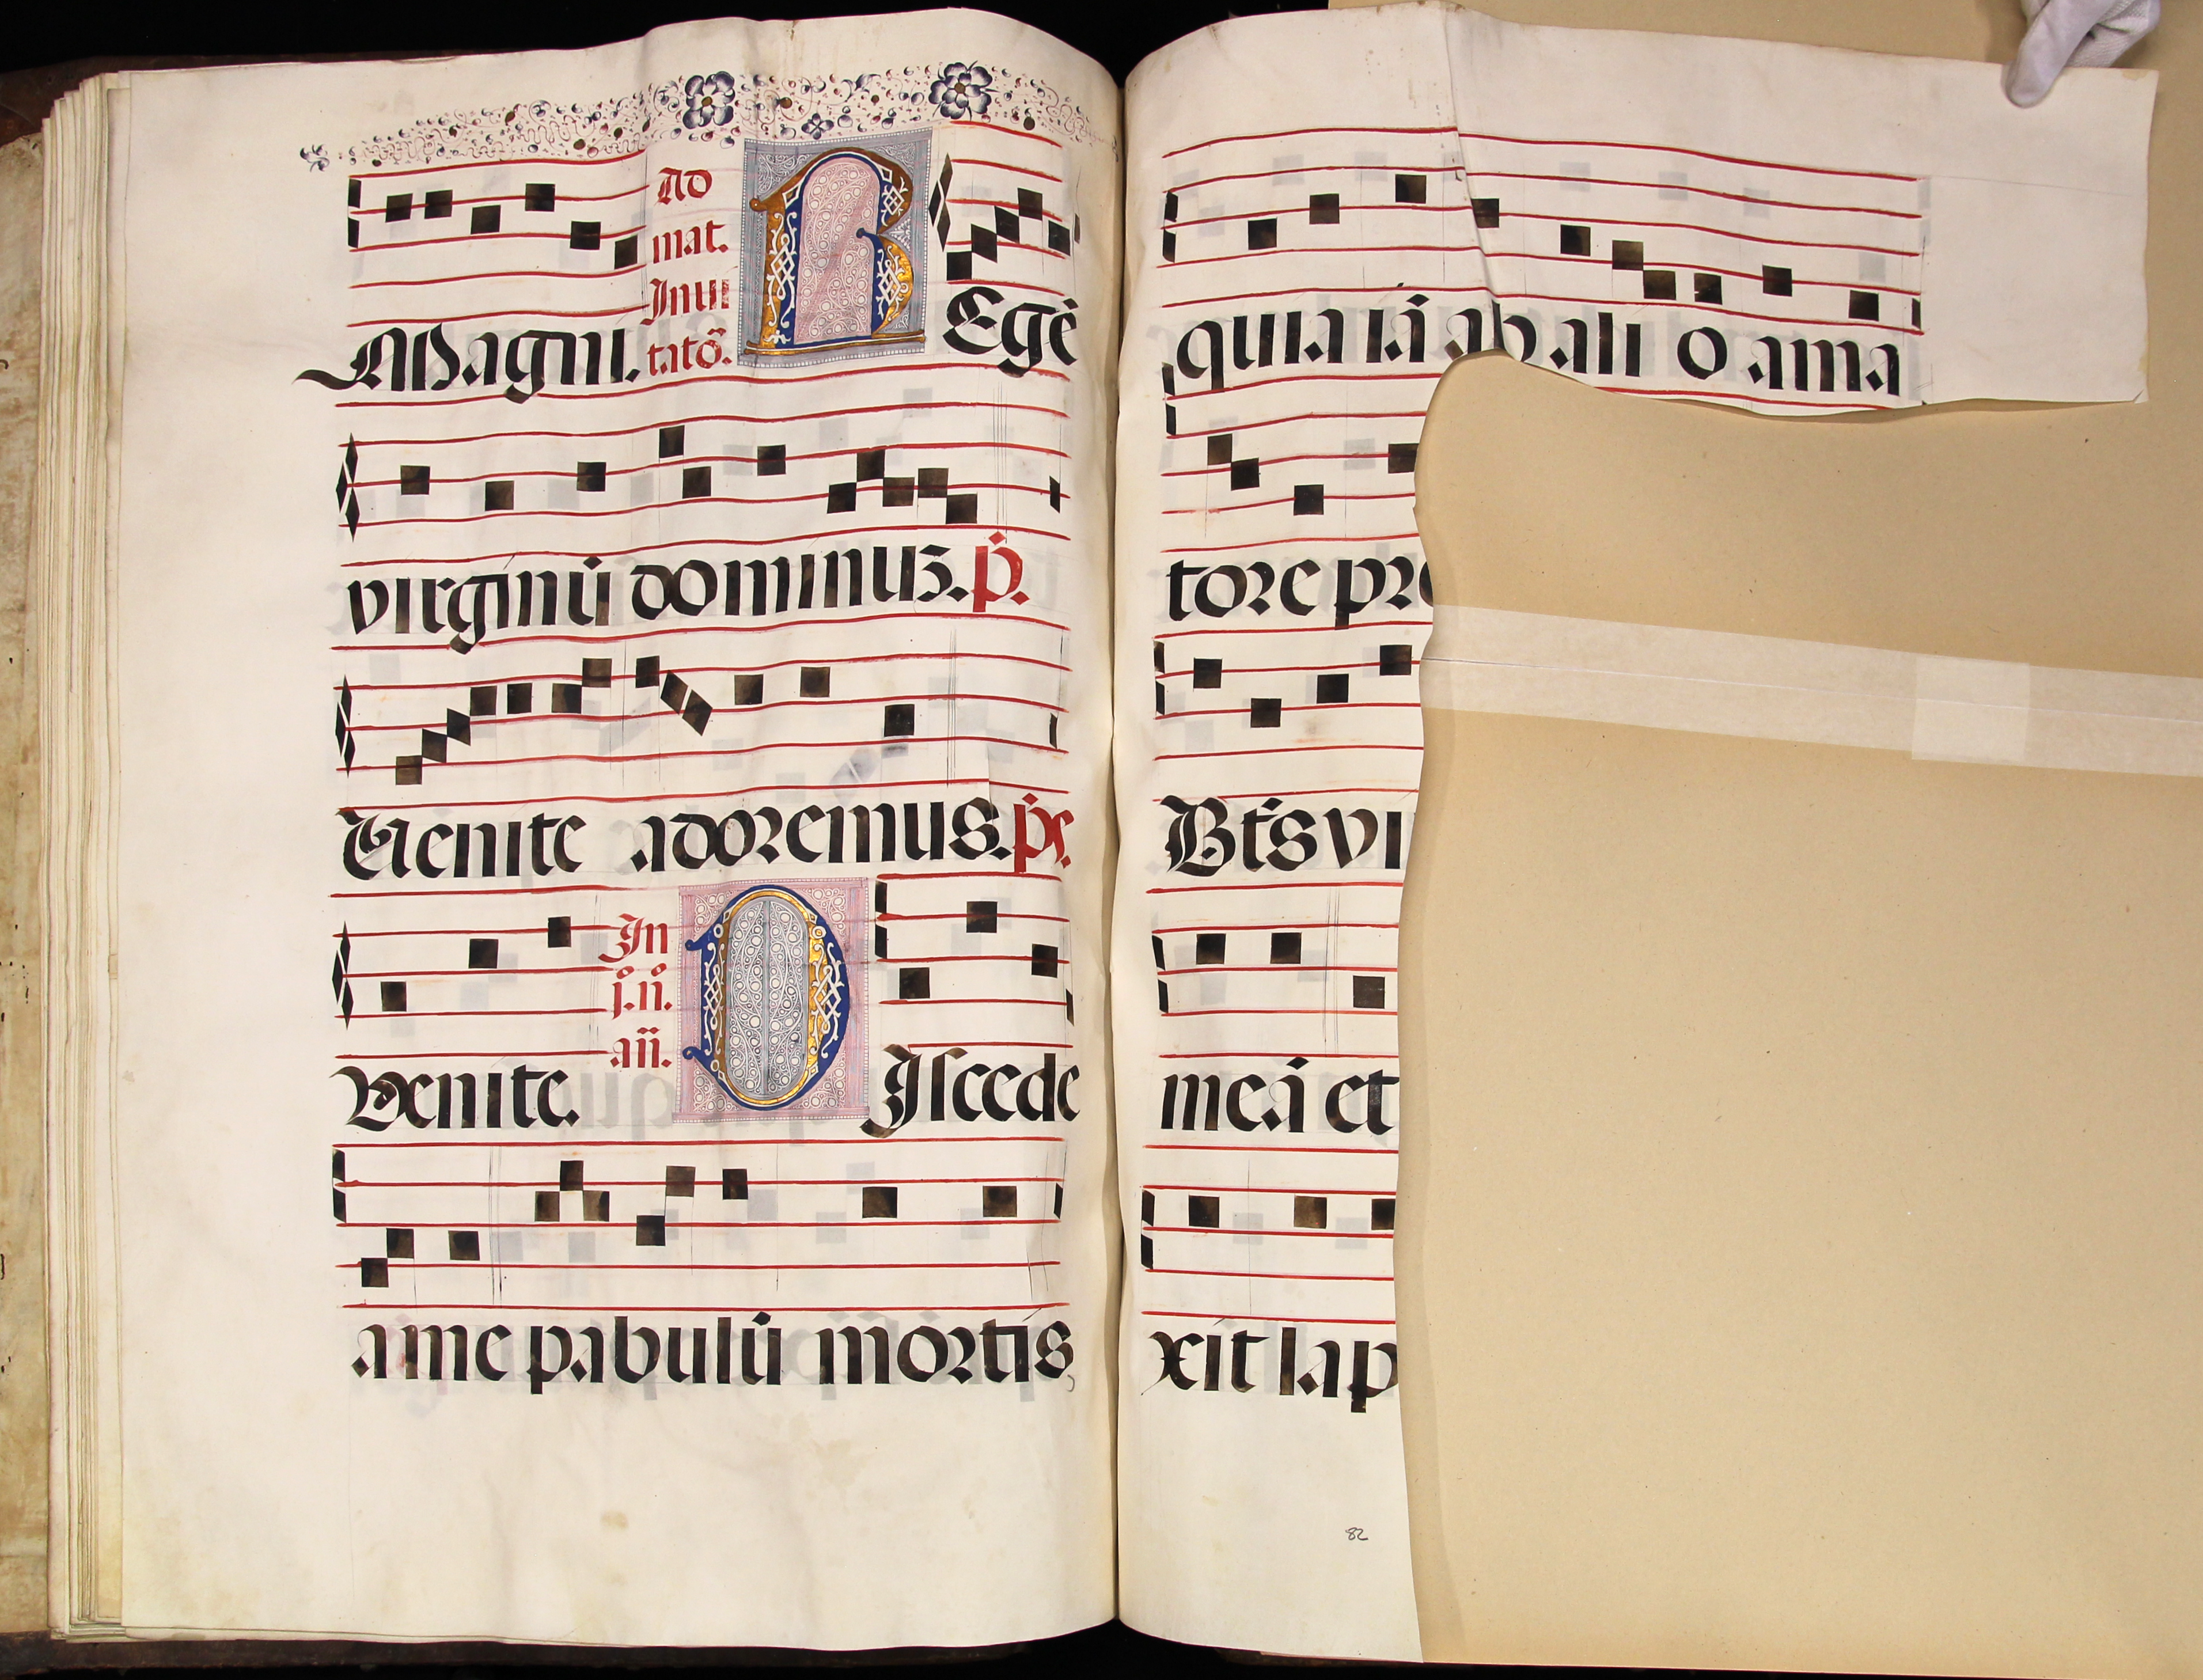 Magni. Ad mat. Inui tatō. REgē
virginū dominus. p̄.
Venite adoremus. p̄s.
Venite. In j.n. añ. DIscede
a me pabulū mortis
quia iā ab ali o ama
tore pre
Bt̄s vi
meā et
xit lap
82